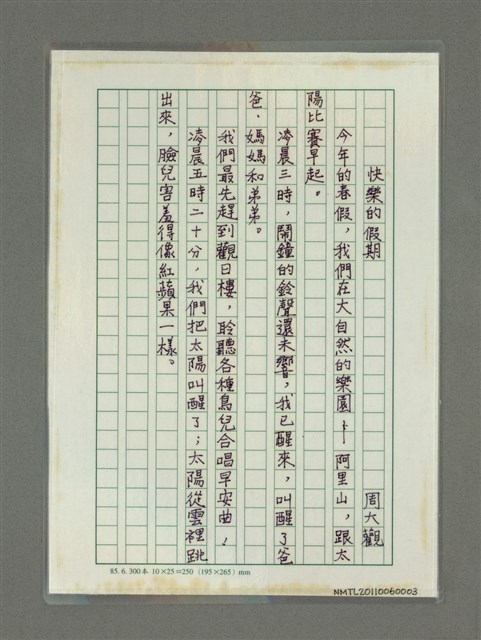 快樂的假期 周大觀
今年的春假，我們在大自然的樂園——阿里山，跟太
陽比賽早起。
凌晨三時，鬧鐘的鈴聲還未響，我已醒來，叫醒了爸
爸、媽媽和弟弟。
我們最先趕到觀日樓，聆聽各種鳥兒合唱早安曲！
凌晨五時二十分，我們把太陽叫醒了；太陽從雲裡跳
出來，臉兒害羞得像紅蘋果一樣。
85. 6. 300本 10×25=250 (195×265) mm
NMTL20110060003